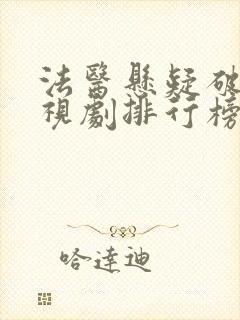 法醫懸疑破
視劇排行榜
哈達迪